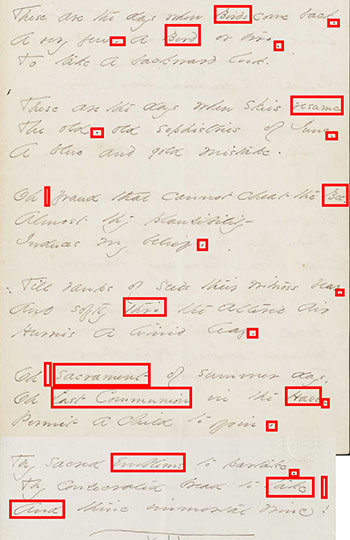 These are the days when Birds come back.
A very few - a Bird or two.
To take a backward look.
These are the days when skies resume
The old - old sophistries of June.
A blue and gold mistake.
Oh fraud that cannot cheat the Bee.
Almost thy plausibility
Induces my belief.
Till ranks of seeds their witness bear
And softly thro' the altered air
Hurries a timid leaf.
Oh Sacrament of summer days,
Oh Last Communion in the Haze
Permit a child to join.
Thy sacred emblems to partake
Thy consecrated bread to take
And thine immortal wine!